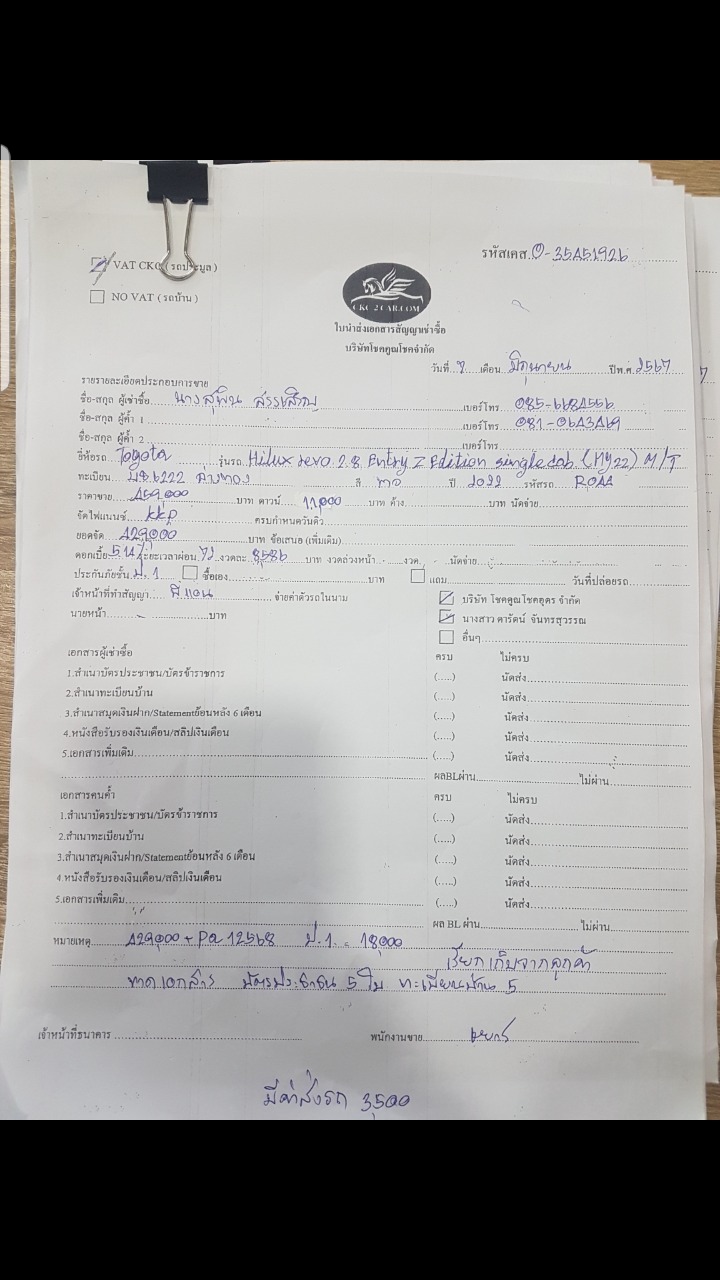 รหัสเคส.O-35A51926
VAT CKC (รถประมูล)
NO VAT (รถบ้าน)
CKC 2 CAR.COM
ใบนำส่งเอกสารสัญญาเช่าซื้อ
บริษัทโชคคูณโชคจำกัด
วันที่ เดือน มิถุนายน ปีพ.ศ. 2567
รายรายละเอียดประกอบการขาย
ชื่อ-สกุล ผู้เช่าซื้อ นางสุพิน สรรเสริญ เบอร์โทร 085-6684556
ชื่อ-สกุล ผู้ค้ำ 1 เบอร์โทร 081-0643469
ชื่อ-สกุล ผู้ค้ำ 2 เบอร์โทร
ยี่ห้อรถ Toyota รุ่นรถ Hilux revo 2.8 Entry Z Edition single cab (MY22) M/T
ทะเบียน 6222 อ่างทอง สี ขาว ปี 2022 รหัสรถ R044
ราคาขาย 459,000 บาท ดาวน์ 11,000 บาท ค้าง บาท นัดจ่าย
จัดไฟแนนซ์ kkp ครบกำหนดวันดิว
ยอดจัด 429,000 บาท ข้อเสนอ (เพิ่มเติม)
ดอกเบี้ย ระยะเวลาผ่อน 72 งวดละ 8586 บาท งวดล่วงหน้า - งวด - นัดจ่าย
ประกันภัยชั้น ป.1 ซื้อเอง บาท แถม วันที่ปล่อยรถ
เจ้าหน้าที่ทำสัญญา พี่แอน จ่ายค่าตัวรถในนาม บริษัท โชคคูณโชคอุดร จำกัด
นายหน้า - บาท นางสาว ดารัตน์ จันทรสุวรรณ
อื่นๆ
เอกสารผู้เช่าซื้อ ครบ ไม่ครบ
1.สำเนาบัตรประชาชน/บัตรข้าราชการ (.....) นัดส่ง
2.สำเนาทะเบียนบ้าน (.....) นัดส่ง
3.สำเนาสมุดเงินฝาก/Statementย้อนหลัง 6 เดือน (.....) นัดส่ง
4.หนังสือรับรองเงินเดือน/สลิปเงินเดือน (.....) นัดส่ง
5.เอกสารเพิ่มเติม (.....) นัดส่ง
ผลBLผ่าน ไม่ผ่าน
เอกสารคนค้ำ ครบ ไม่ครบ
1.สำเนาบัตรประชาชน/บัตรข้าราชการ (.....) นัดส่ง
2.สำเนาทะเบียนบ้าน (.....) นัดส่ง
3.สำเนาสมุดเงินฝาก/Statementย้อนหลัง 6 เดือน (.....) นัดส่ง
4.หนังสือรับรองเงินเดือน/สลิปเงินเดือน (.....) นัดส่ง
5.เอกสารเพิ่มเติม (.....) นัดส่ง
ผล BL ผ่าน ไม่ผ่าน
หมายเหตุ 429,000 + Pa 12568 ป.1. = 18,000
เรียกเก็บจากลูกค้า
ขาดเอกสาร บัตรประชาชน 5 ใบ ทะเบียนบ้าน 5
เจ้าหน้าที่ธนาคาร พนักงานขาย
มีค่าส่งรถ 3,500